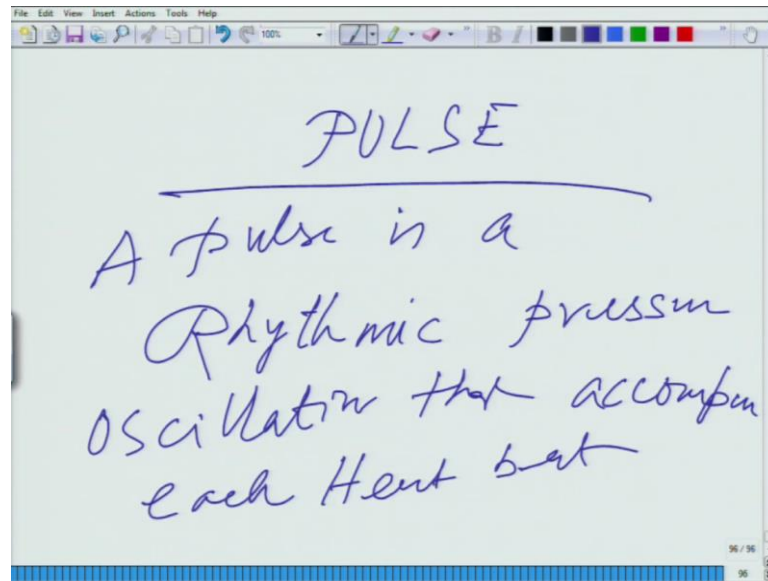 File Edit View Insert Actions Tools Help
100%
PULSE
A pulse is a
Rhythmic pressure
oscillation that accompan
each Heart beat
96 / 96
96